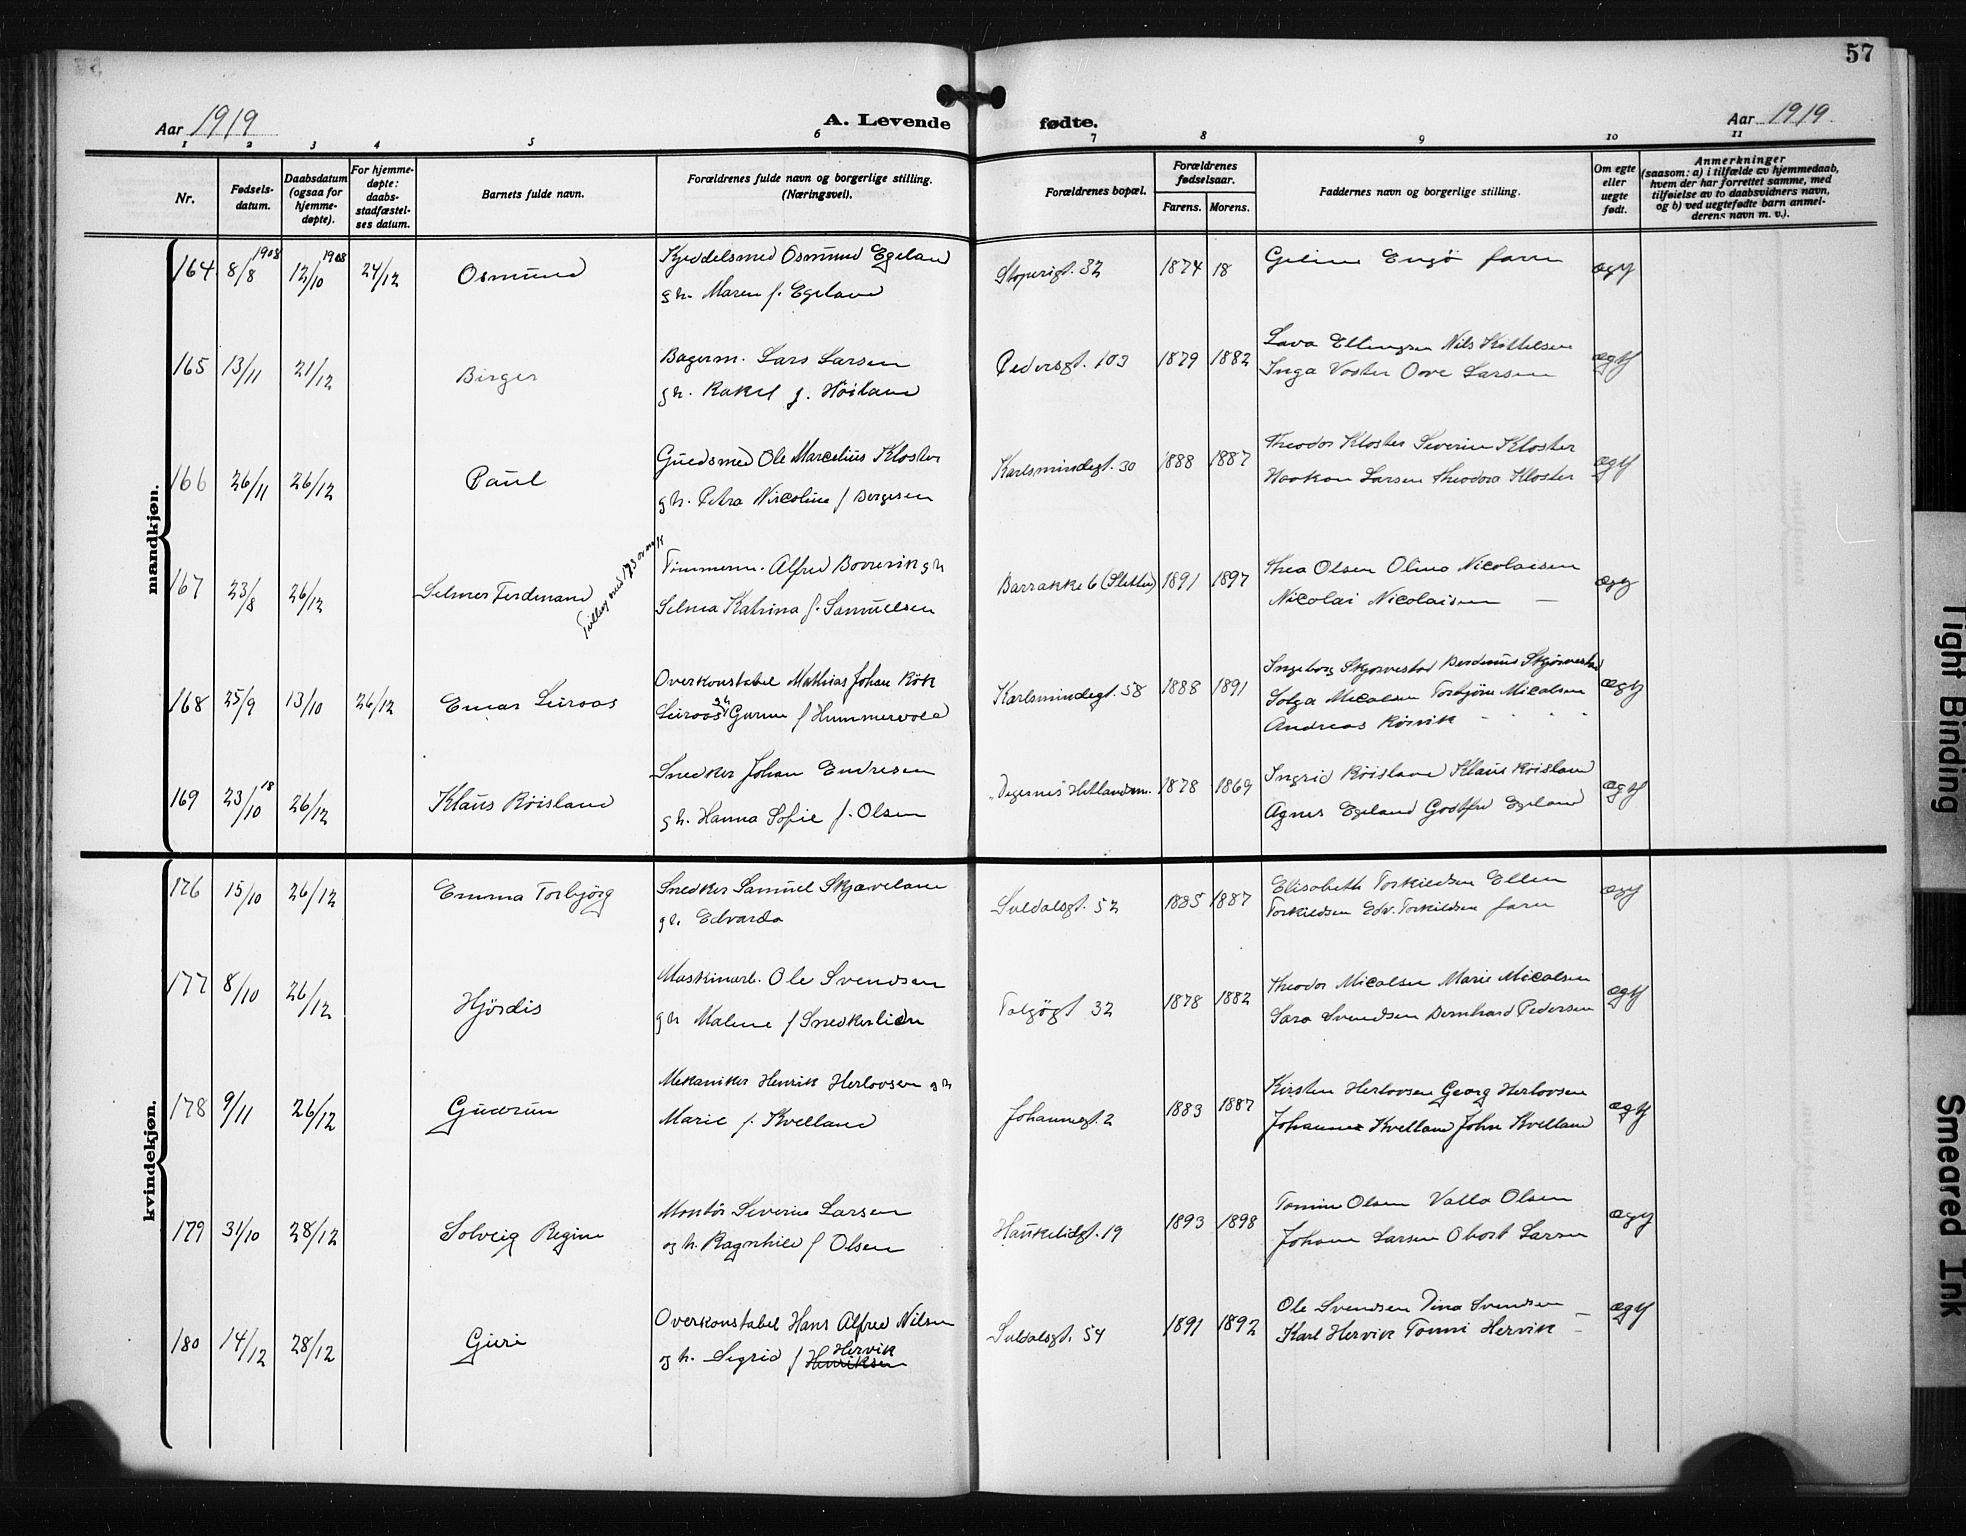 57
Aar 1919
A. Levende fødte.
Aar 1919
1 2 3 4 5 6 7 8 9 10 11
Nr.
Fødsels-
datum.
Daabsdatum
(ogsaa for
hjemme-
døpte).
For hjemme-
døpte:
daabs-
stadfæstel-
ses datum.
Barnets fulde navn.
Forældrenes fulde navn og borgerlige stilling.
(Næringsvei).
Forældrenes bopæl.
Forældrenes
fødselsaar.
Farens. Morens.
Faddernes navn og borgerlige stilling.
Om egte
eller
uegte
født.
Anmerkninger
(saasom: a) i tilfælde av hjemmedaab,
hvem der har forrettet samme, med
tilføielse av to daabsvidners navn,
og b) ved uegtefødte barn anmel-
derens navn m. v.).
mandkjøn.
164 8/8 1908 12/10 1908 24/12 Osmund
Kjeddelsmed Osmund Egeland
g h. Maren f. Egeland
32 1874 18
Engø farm
ægt
165 13/11 21/12 Birger
Bagerm. Lars Larsen
g h. Rakel f. Höiland
Pedersgt. 103 1879 1882
Lava Ellingsen Nils Kittelsen
Inga Voster Ove Larsen
ægt
166 26/11 26/12 Paul
Guldsmed Ole Marcelius Kloster
g h. Petra Nicoline f Bergesen
Karlsmindegt. 30 1888 1887
Theodor Kloster Severin Kloster
Haakon Larsen Theodora Kloster
ægt
167 23/8 26/12 Selmer Ferdinand
Tvilling med 173
Tømmerm. Alfred Boorevik g h
Selma Katrina f. Samuelsen
Barrakke 6 1891 1897
Thea Olsen Oline Nicolaisen
Nicolai Nicolaisen —
ægt
168 25/9 13/10 26/12 Einar Leiroos
Overkonstabel Mathias Johan Rök
Leiroos g h Gurine f Hummervold
Karlsmindegt. 58 1888 1891
Ingeborg Skjorvestad Berdinius Skjørvestad
Solga Micalsen Torbjörn Micalsen
Andreas Röisvik
ægt
169 23/10 18 26/12 Klaus Röisland
Snedker Johan Endresen
g h. Hanna Sofie f. Olsen
Hetlandsm. 1878 1869
Ingrid Röisland Klaus Röisland
Agnes Egeland Godtfred Egeland
ægt
kvindekjøn.
176 15/10 26/12 Emma Torbjørg
Snedker Samuel Skjæveland
g h. Edvarda
Suldalsgt. 52 1885 1887
Elisabeth Torkildsen Ellen
Torkildsen Edv. Torkildsen farm
ægt
177 8/10 26/12 Hjördis
Maskinarb. Ole Svendsen
g h Malene f Snedkerlien
Talgøgt 32 1878 1882
Theodor Micalsen Marie Micalsen
Sara Svendsen Bernhard Pedersen
ægt
178 9/11 26/12 Gudrun
Mekaniker Henrik Herlovsen og h
Marie f. Kvelland
Johannesgt. 2 1883 1887
Kirsten Herlovsen Georg Herlovsen
Johanne Kvelland John Kvelland
ægt
179 31/10 28/12 Solveig Regine
Montør Severin Larsen
og h. Ragnhild f Olsen
Haukeligt. 19 1893 1898
Tomine Olsen Valla Olsen
Johan Larsen Obert Larsen
ægt
180 14/12 28/12 Guri
Overkonstabel Hans Alfred Nilsen
Hervik
og h. Sigrid f Henriksen
Suldalsgt. 54 1891 1892
Ole Svendsen Tina Svendsen
Karl Hervik Tomni Hervik —
ægt
Tight Binding
Smeared Ink